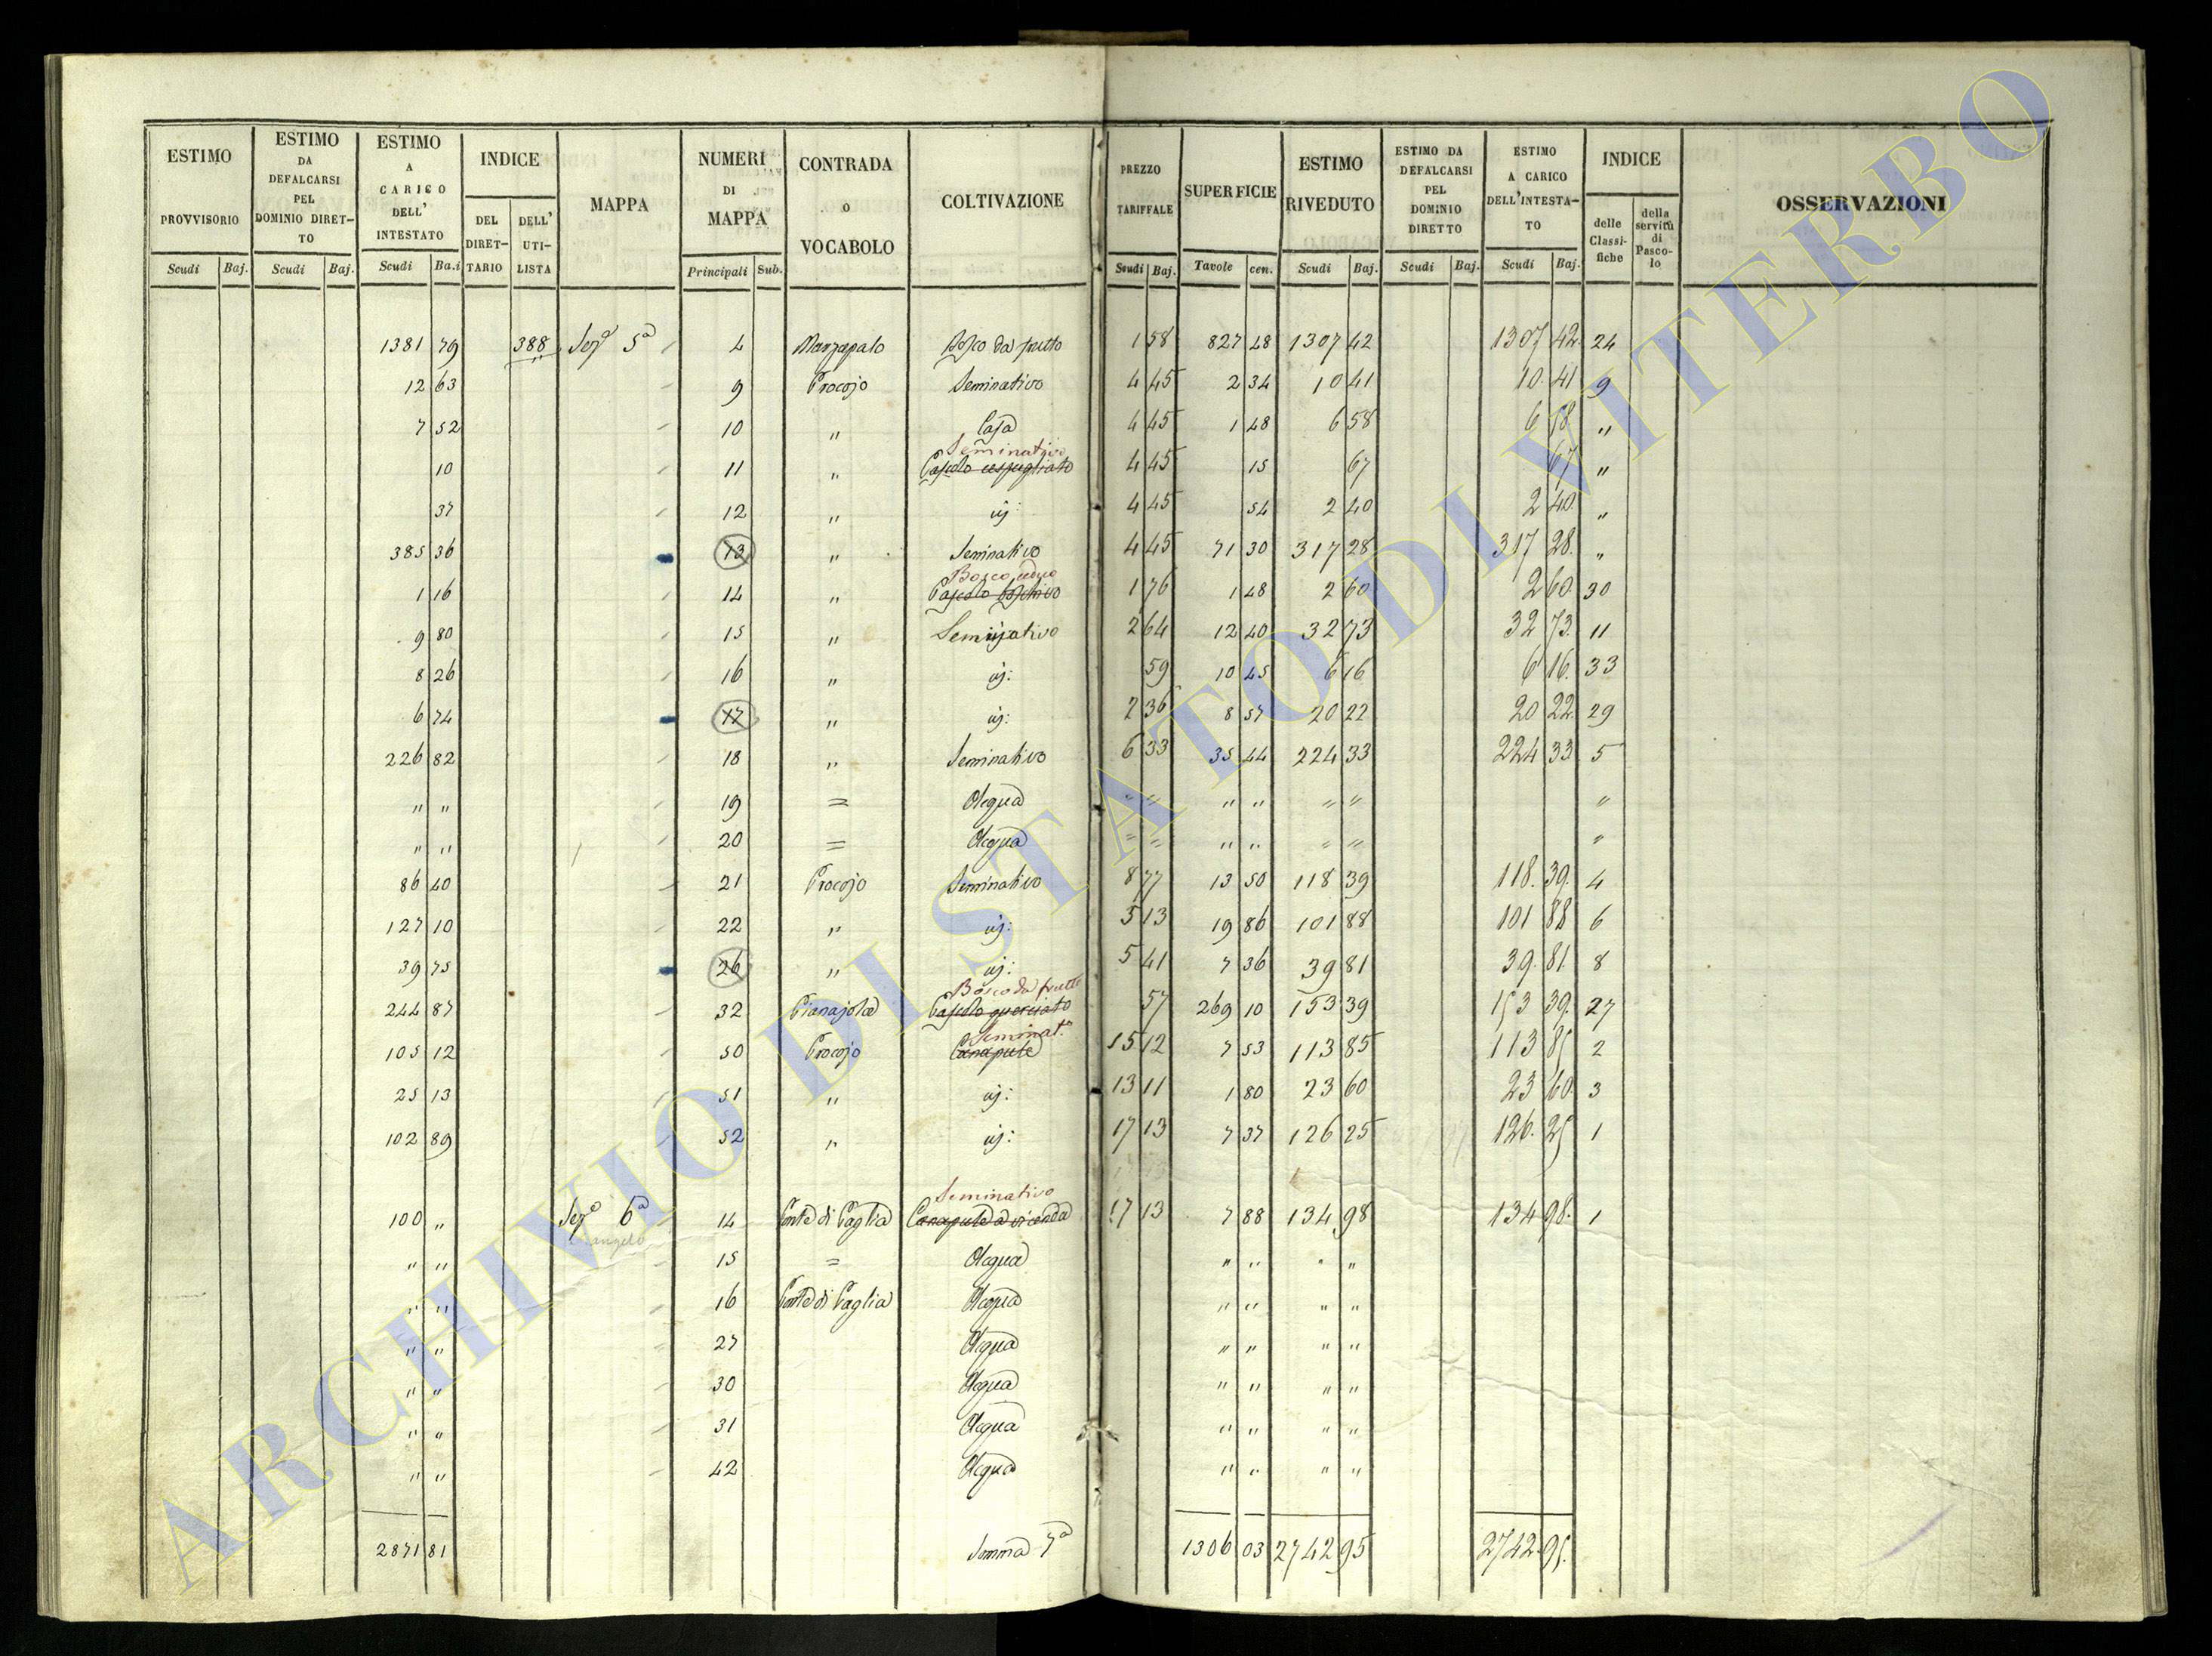 ESTIMO PROVVISORIO | ESTIMO DA DEFALCARSI PEL DOMINIO DIRET-TO | ESTIMO A CARICO DELL' INTESTATO | INDICE | MAPPA | NUMERI DI MAPPA | CONTRADA O VOCABOLO | COLTIVAZIONE | PREZZO TARIFFALE | SUPERFICIE | ESTIMO RIVEDUTO | ESTIMO DA DEFALCARSI PEL DOMINIO DIRETTO | ESTIMO A CARICO DELL'INTESTA-TO | INDICE | OSSERVAZIONI
DEL DIRET-TARIO | DELL' UTI-LISTA | delle Classi-fiche | della servitù di Pasco-lo
Scudi | Baj. | Scudi | Baj. | Scudi | Ba.i | Principali | Sub. | Scudi | Baj. | Tavole | cen. | Scudi | Baj. | Scudi | Baj. | Scudi | Baj.
1381 79 388 Sez.e 5a 4 Bosco da frutto 1 58 827 48 1307 42 1307 42 24
12 63 9 Procojo Seminativo 4 45 2 34 10 41 10 41 9
7 52 10 " Casa 4 45 1 48 6 58 6 58 "
Seminativo
10 11 " Pascolo cespugliato 4 45 15 67 67 "
37 12 " id: 4 45 54 2 40 2 40 "
385 36 13 " Seminativo 4 45 71 30 317 28 317 28 "
Bosco ceduo
1 16 14 " Pascolo boschivo 1 76 1 48 2 60 2 60 30
9 80 15 " Seminativo 2 64 12 40 32 73 32 73 11
8 26 16 " id: 59 10 45 6 16 6 16 33
6 74 17 " id: 2 36 8 57 20 22 20 22 29
226 82 18 " Seminativo 6 33 35 44 224 33 224 33 5
" " 19 = Acqua " " " " " " "
" " 20 = Acqua " " " " " " "
86 40 21 Procojo Seminativo 8 77 13 50 118 39 118 39 4
127 10 22 " id: 5 13 19 86 101 88 101 88 6
39 75 26 " id: 5 41 7 36 39 81 39 81 8
Bosco da frutto
244 87 32 Pianajola Pascolo querciato 57 269 10 153 39 153 39 27
Seminat.o
105 12 50 Procojo Canapule 15 12 7 53 113 85 113 85 2
25 13 51 " id: 13 11 1 80 23 60 23 60 3
102 89 52 " id: 17 13 7 37 126 25 126 25 1
Seminativo
100 " Sez.e 6a 14 Ponte di Paglia Canapule a vicenda 17 13 7 88 134 98 134 98 1
" " 15 = Acqua " " " "
" " 16 Ponte di Paglia Acqua " " " "
" " 27 Acqua " " " "
" " 30 Acqua " " " "
" " 31 Acqua " " " "
" " 42 Acqua " " " "
2871 81 Somma 7a 1306 03 2742 95 2742 95
ARCHIVIO DI STATO DI VITERBO